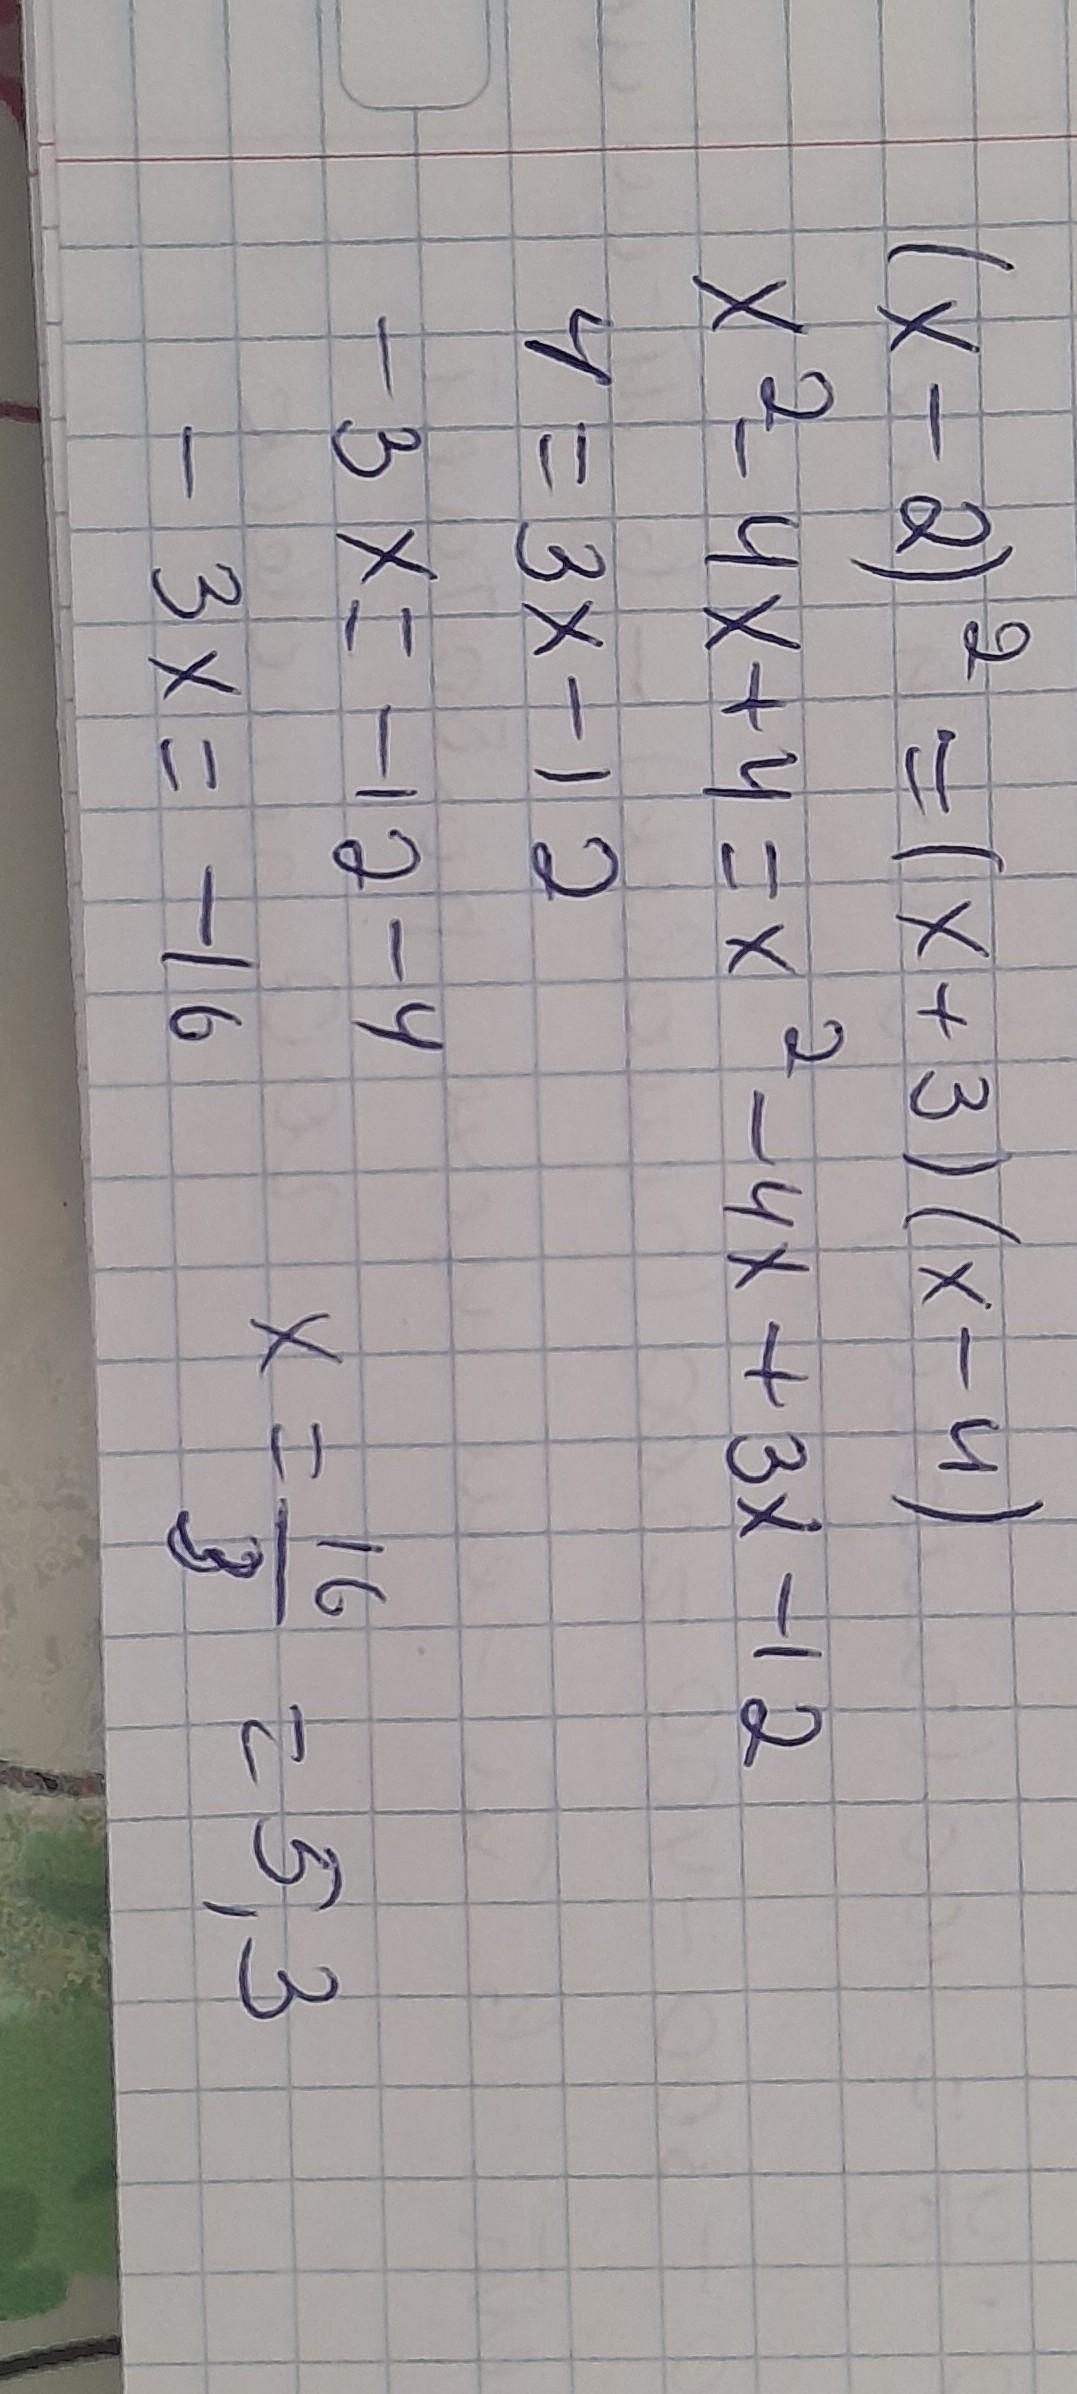 (x - 2)² = (x + 3)(x - 4)
x² - 4x + 4 = x² - 4x + 3x - 12
4 = 3x - 12
-3x = -12 - 4
-3x = -16
x = 16/3 = 5,3